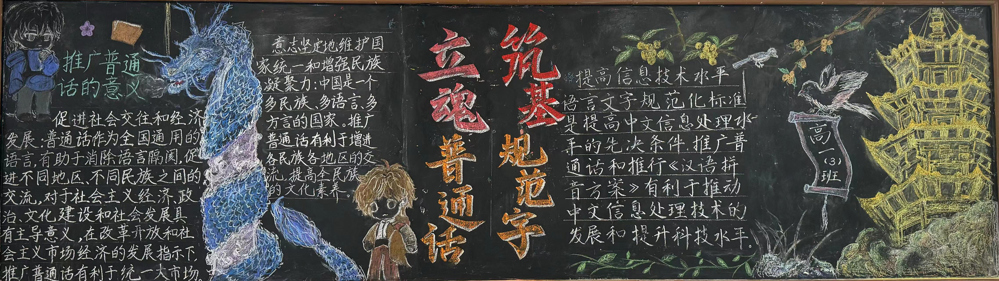 推广普通
话的意义
促进社会交往和经济
发展:普通话作为全国通用的
语言,有助于消除语言隔阂,促
进不同地区、不同民族之间的
交流,对于社会主义经济、政
治、文化、建设和社会发展具
有主导意义,在改革开放和社
会主义市场经济的发展指示下.
推广普通话有利于统一大市场.
意志坚定地维护国
家统一和增强民族
凝聚力:中国是一个
多民族、多语言、多
方言的国家,推广
普通话有利于增进
各民族各地区的交
流、提高全民族
的文化素养.
筑基规范字
立魂普通话
提高信息技术水平
语言文字规范化标准
是提高中文信息处理水
平的先决条件.推广普
通话和推行《汉语拼
音方案》有利于推动
中文信息处理技术的
发展和提升科技水平.
高一(3)班